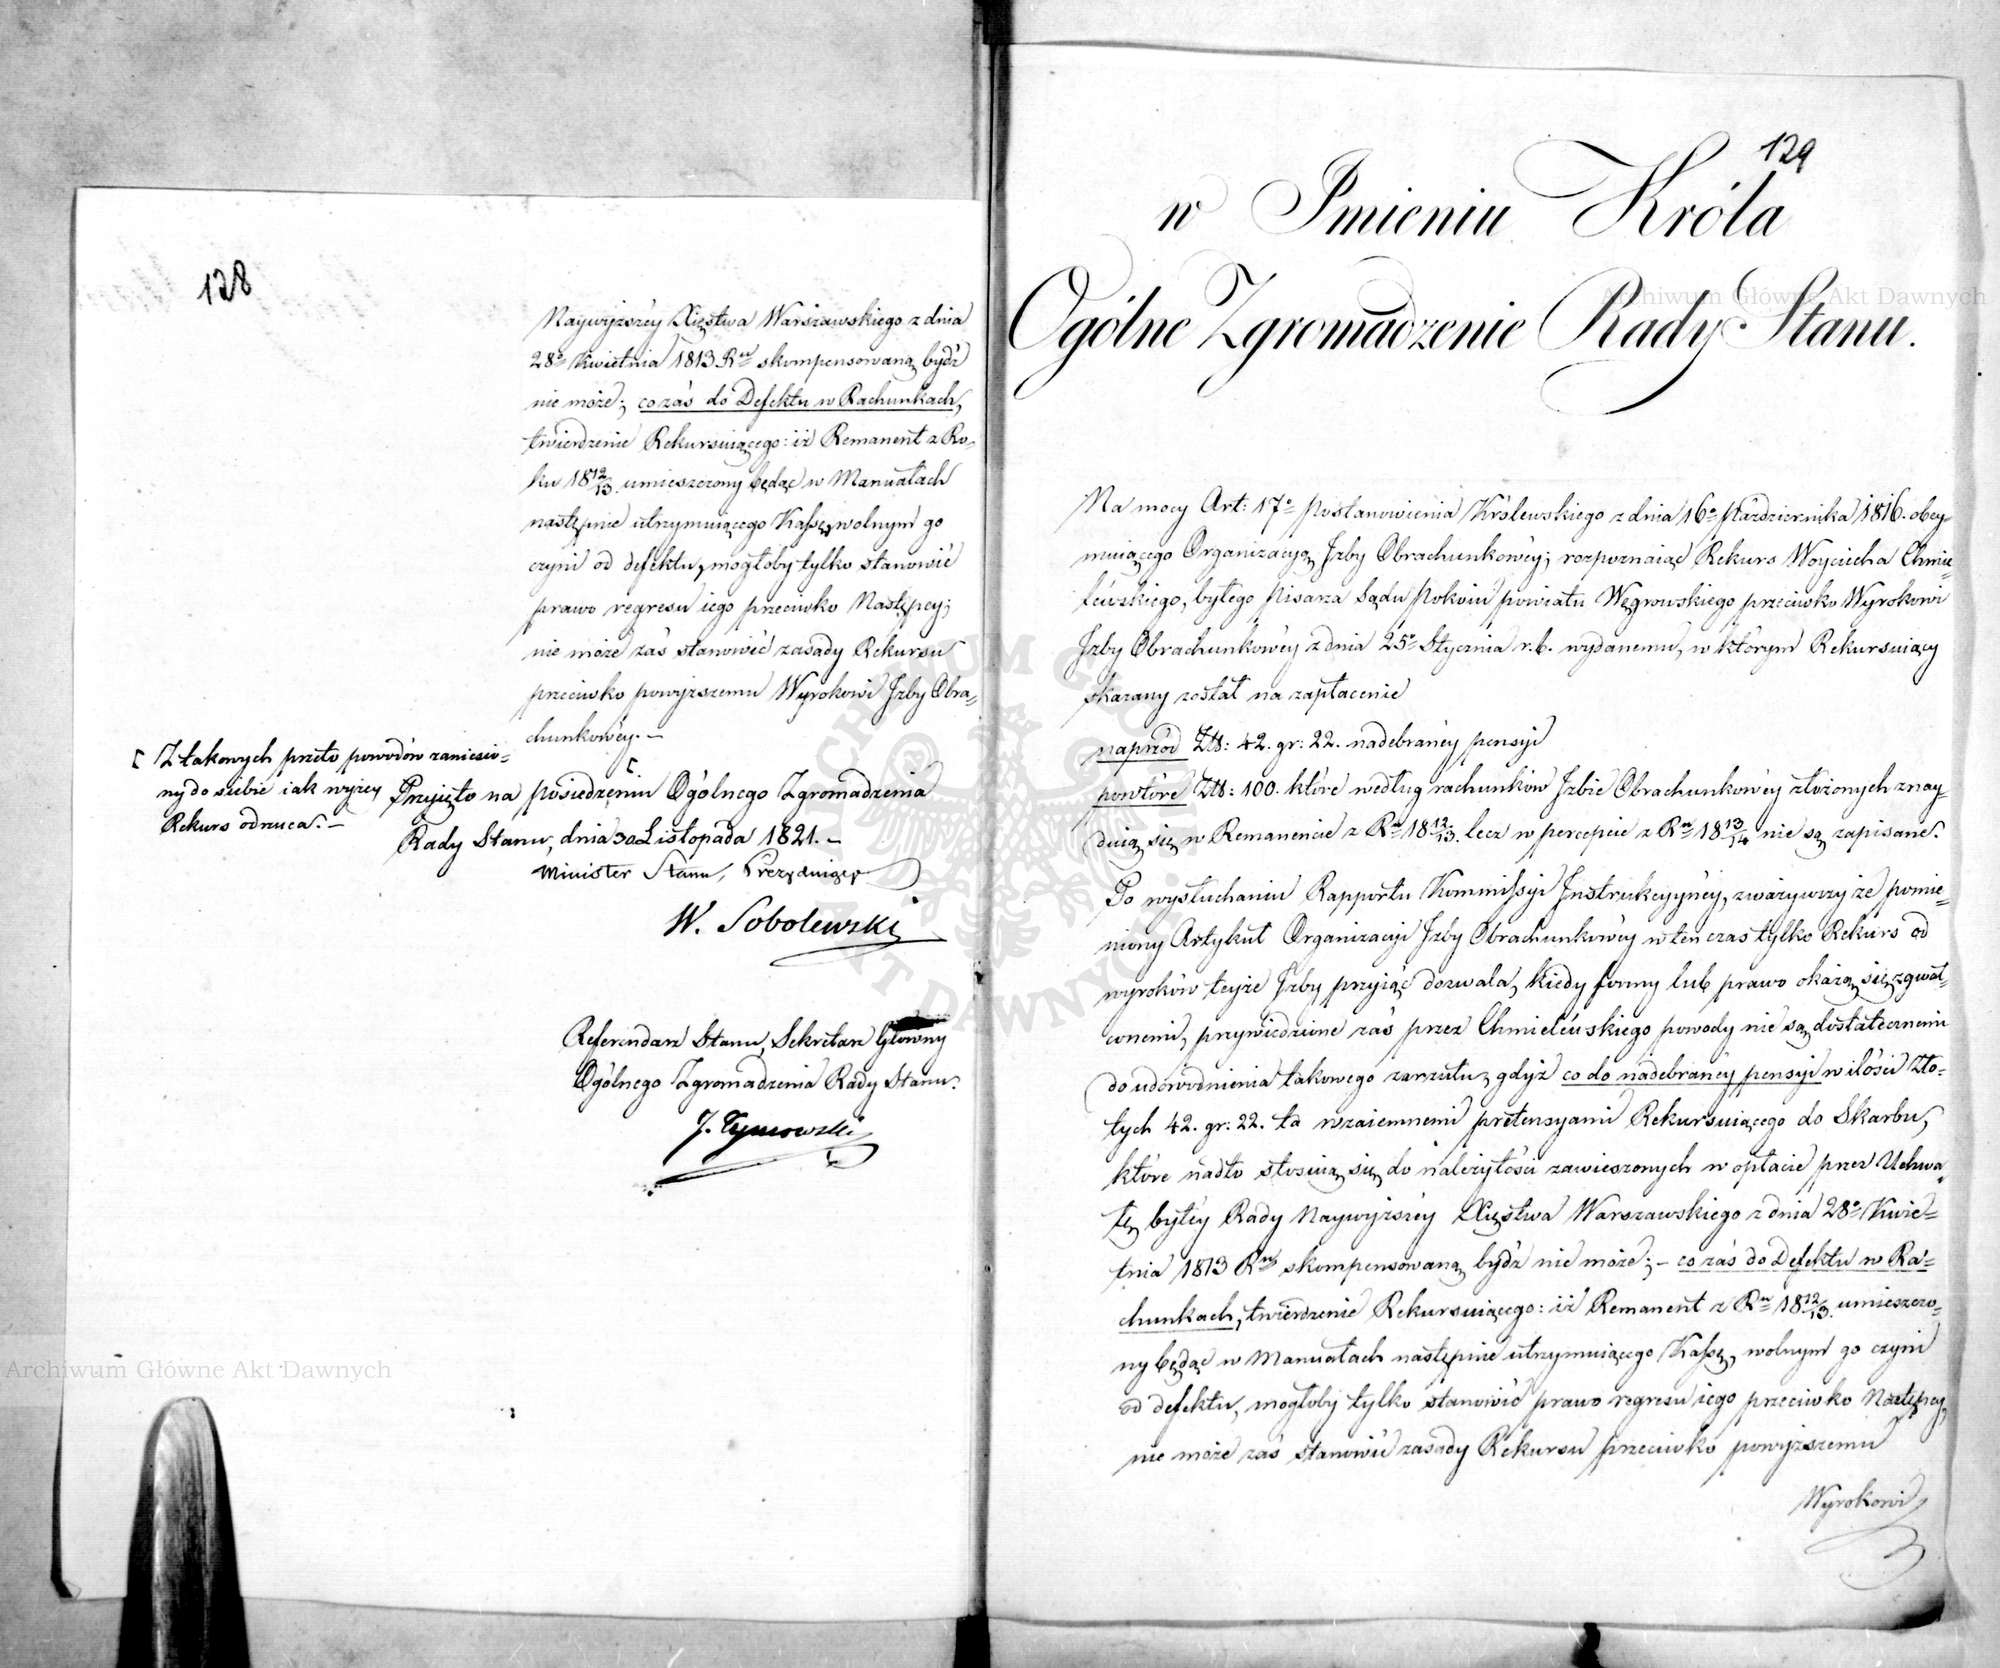 128
Naywyższéy Xięstwa Warszawskiego z dnia
28º Kwietnia 1813 Rᵘ skompensowaną bydź
nie może; co zaś do Defektu w Rachunkach,
twierdzenie Rekursuiącego: iż Remanent z Ro=
ku 18 12/13. umieszczony będąc w Manuałach
następnie utrzymuiącego Kassę, wolnym go
czyni od defektu, mogłoby tylko stanowić
prawo regresu iego przeciwko Następcy;
nie może zaś stanowić zasady Rekursu
przeciwko powyższemu Wyrokowi Izby Obra=
chunkowéy. –
[ Z takowych przeto powodów zaniesio=
ny do siebie iak wyżey
Rekurs odrzuca. –
[
Przyięto na posiedzeniu Ogólnego Zgromadzenia
Rady Stanu, dnia 30 Listopada 1821. –
Minister Stanu, Prezyduiący
W. Sobolewski
Referendarz Stanu, Sekretarz Główny
Ogólnego Zgromadzenia Rady Stanu.
J. Tymowski
129
w Imieniu Króla
Ogólne Zgromadzenie Rady Stanu.
Na mocy Art: 17º Postanowienia Królewskiego z dnia 16º Października 1816. obey=
muiącego Organizacyą Izby Obrachunkowéy; rozpoznaiąc Rekurs Woyciecha Chmie=
léwskiego, byłego Pisarza Sądu Pokoiu powiatu Węgrowskiego przeciwko Wyrokowi
Izby Obrachunkowéy z dnia 25º Stycznia r. b. wydanemu, w którym Rekursuiący
skazany został na zapłacenie
naprzód Złł: 42. gr: 22. nadebranéy pensyi
powtóre Złł: 100. które według rachunków Izbie Obrachunkowéy złożonych znay=
duią się w Remanencie z Rᵘ 18 12/13. lecz w percepcie z Rᵘ 18 13/14 nie są zapisane.
Po wysłuchaniu Rapportu Kommissyi Instrukcyynéy, zważywszy że pomie=
niony Artykuł Organizacyi Izby Obrachunkowéy w ten czas tylko Rekurs od
wyroków teyże Izby przyiąć dozwala, kiedy formy lub prawo okażą się zgwał=
conemi, przywiedzione zaś przez Chmieléwskiego powody nie są dostatecznemi
do udowodnienia takowego zarzutu, gdyż co do nadebranéy pensyi w ilości Zło=
tych 42. gr: 22. ta wzaiemnemi pretensyami Rekursuiącego do Skarbu,
które nadto stosuią się do należytości zawieszonych w opłacie przez Uchwa=
łę byłéy Rady Naywyższéy Xięstwa Warszawskiego z dnia 28º Kwie=
tnia 1813 Rᵘ skompensowaną bydź nie może; – co zaś do Defektu w Ra=
chunkach, twierdzenie Rekursuiącego: iż Remanent z Rᵘ 18 12/13. umieszczo=
ny będąc w Manuałach następnie utrzymuiącego Kassę, wolnym go czyni
od defektu, mogłoby tylko stanowić prawo regresu iego przeciwko Następcy,
nie może zaś stanowić zasady Rekursu przeciwko powyższemu
Wyrokowi
Archiwum Główne Akt Dawnych
Archiwum Główne Akt Dawnych
ARCHIWUM GŁÓWNE AKT DAWNYCH